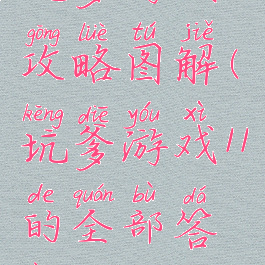 gōng lüè tú jiě
攻略图解(
kēng diē yóu xì
坑爹游戏11
de quán bù dá
的全部答